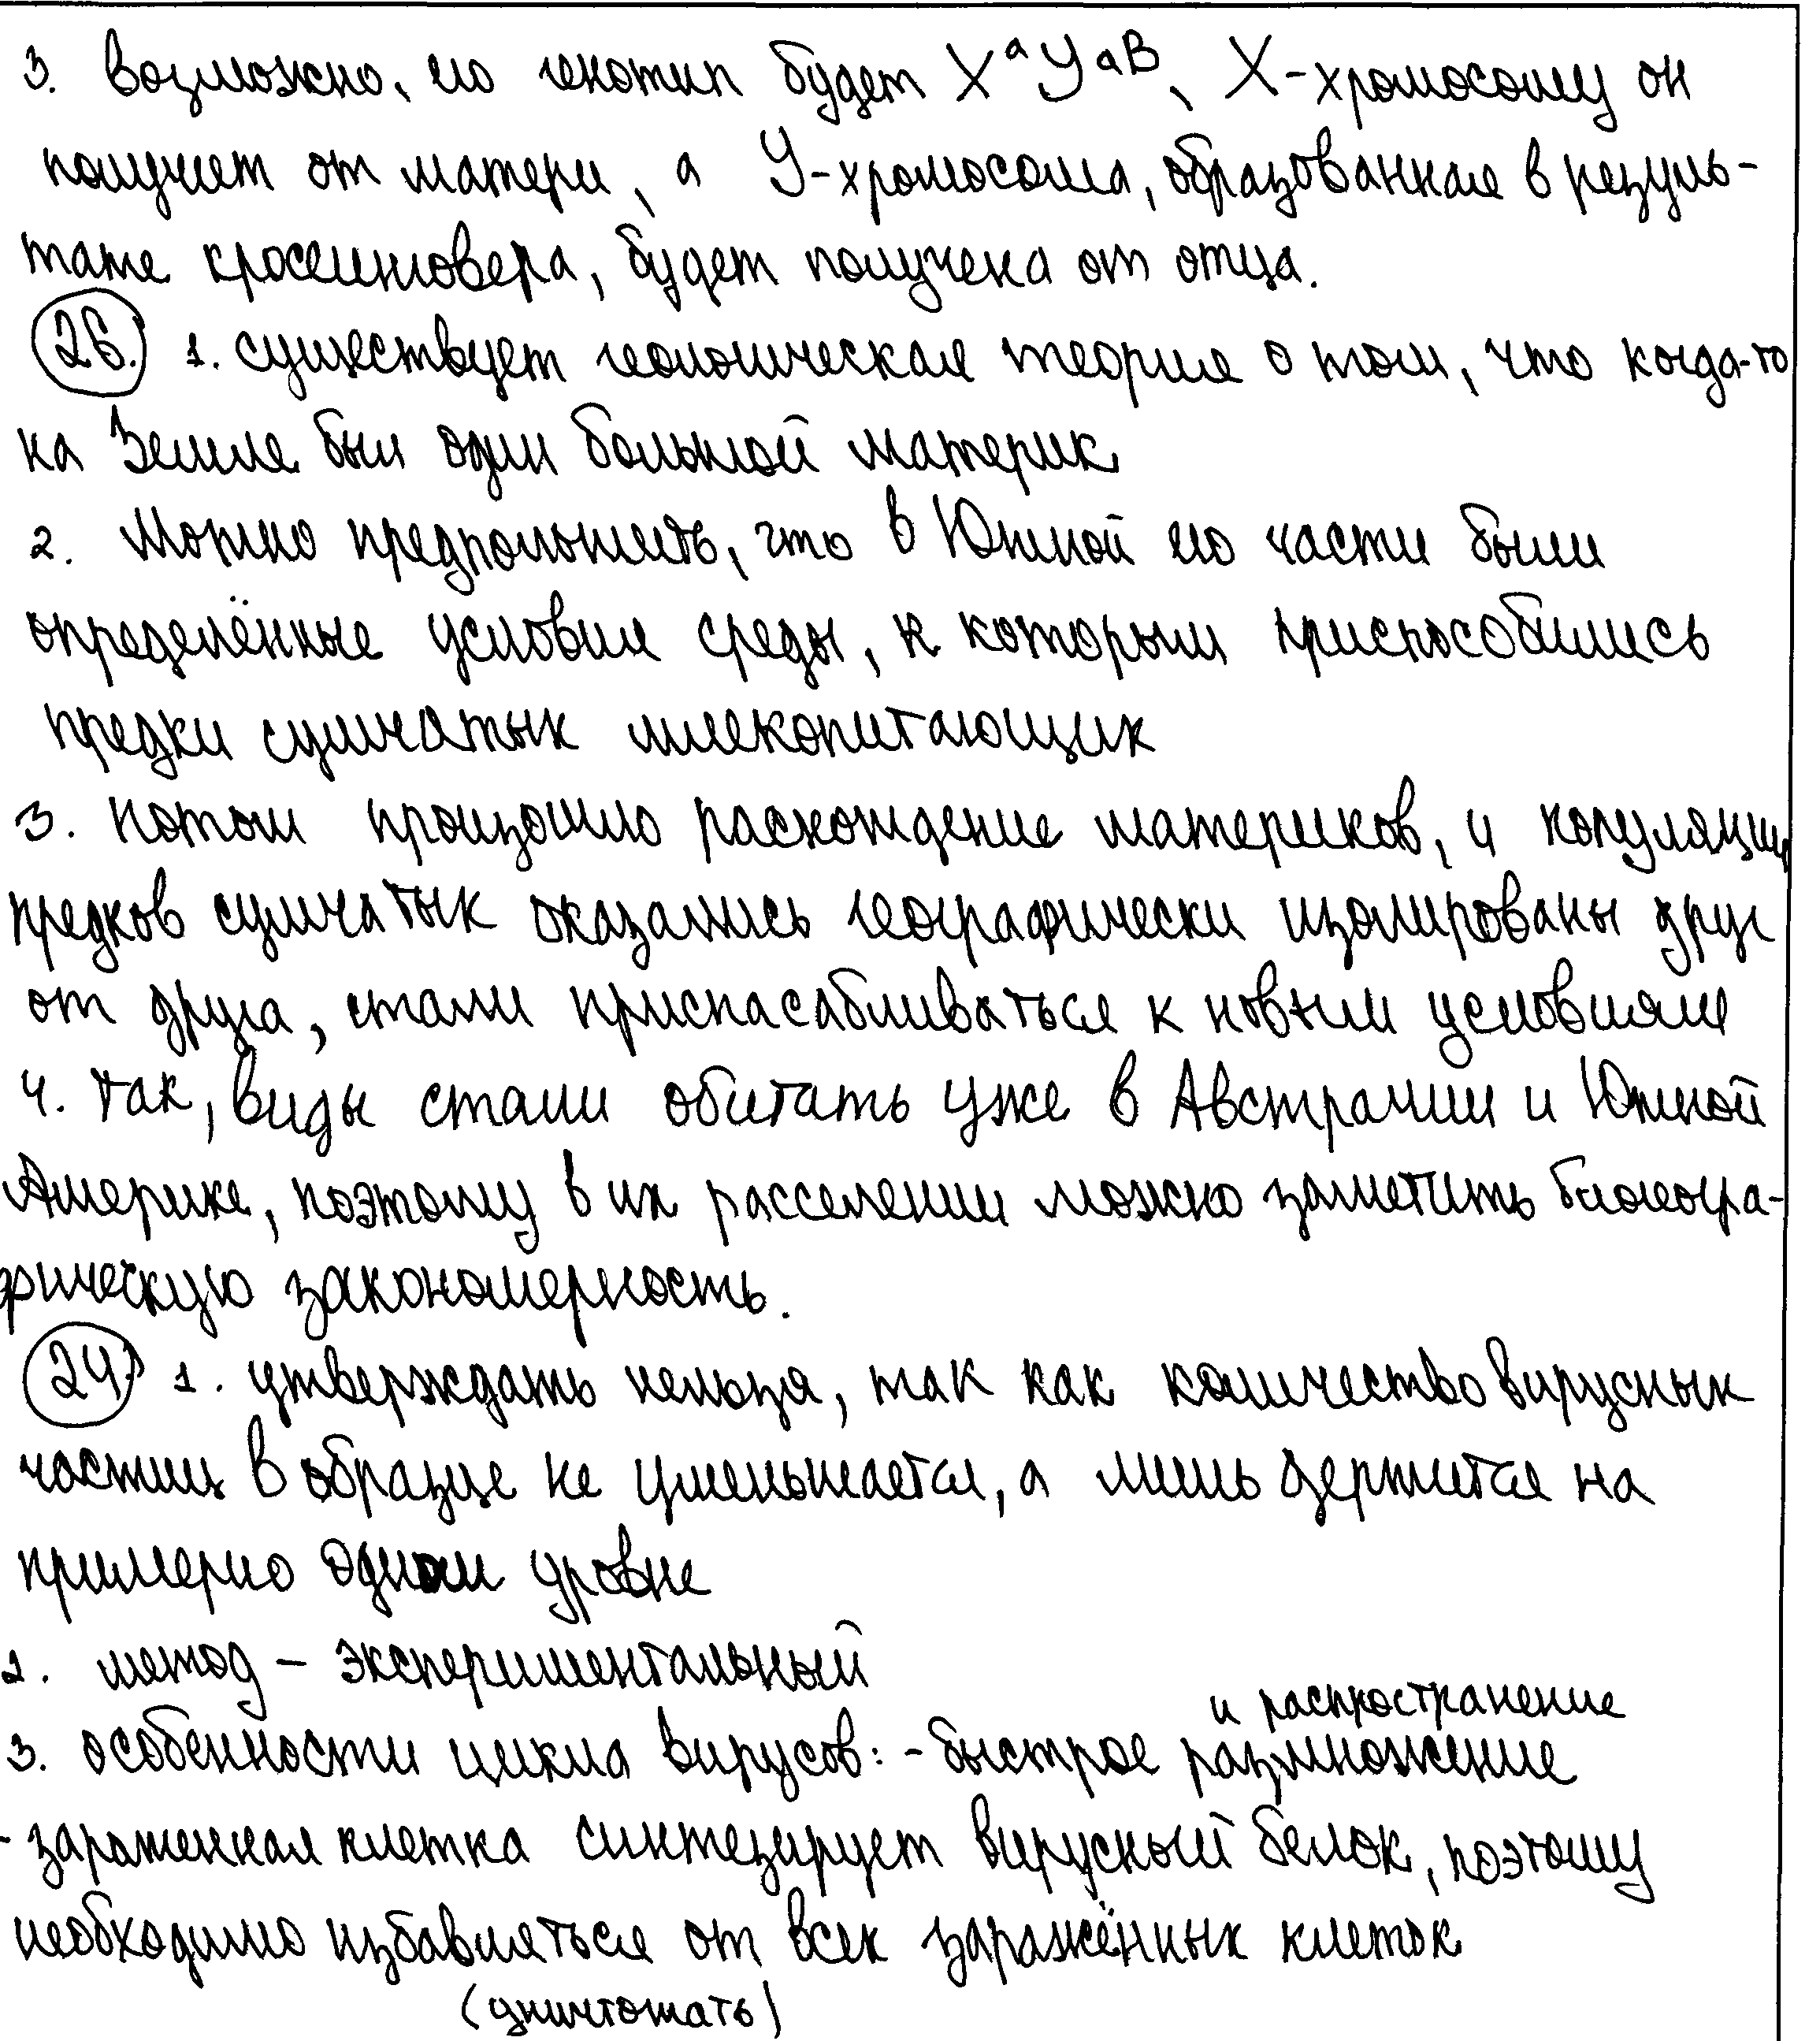 3. возможно, его генотип будет XᵃYᵃᴮ, X-хромосому он
получит от матери, а У-хромосома, образованная в резуль-
тате кроссинговера, будет получена от отца.
26. 1. существует геологическая теория о том, что когда-то
на Земле был один большой материк
2. Можно предположить, что в Южной его части были
определённые условия среды, к которым приспособились
предки сумчатых млекопитающих
3. потом произошло расхождение материков, и популяции
предков сумчатых оказались географически изолированы друг
от друга, стали приспасабливаться к новым условиям
4. так, виды стали обитать уже в Австралии и Южной
Америке, поэтому в их расселении можно заметить биогеогра-
фическую закономерность.
24. 1. утверждать нельзя, так как количество вирусных
частиц в образце не уменьшается, а лишь держится на
примерно одном уровне
2. метод – экспериментальный
и распространение
3. особенности цикла вирусов: - быстрое размножение
- зараженная клетка синтезирует вирусный белок, поэтому
необходимо избавляться от всех заражённых клеток
(уничтожать)